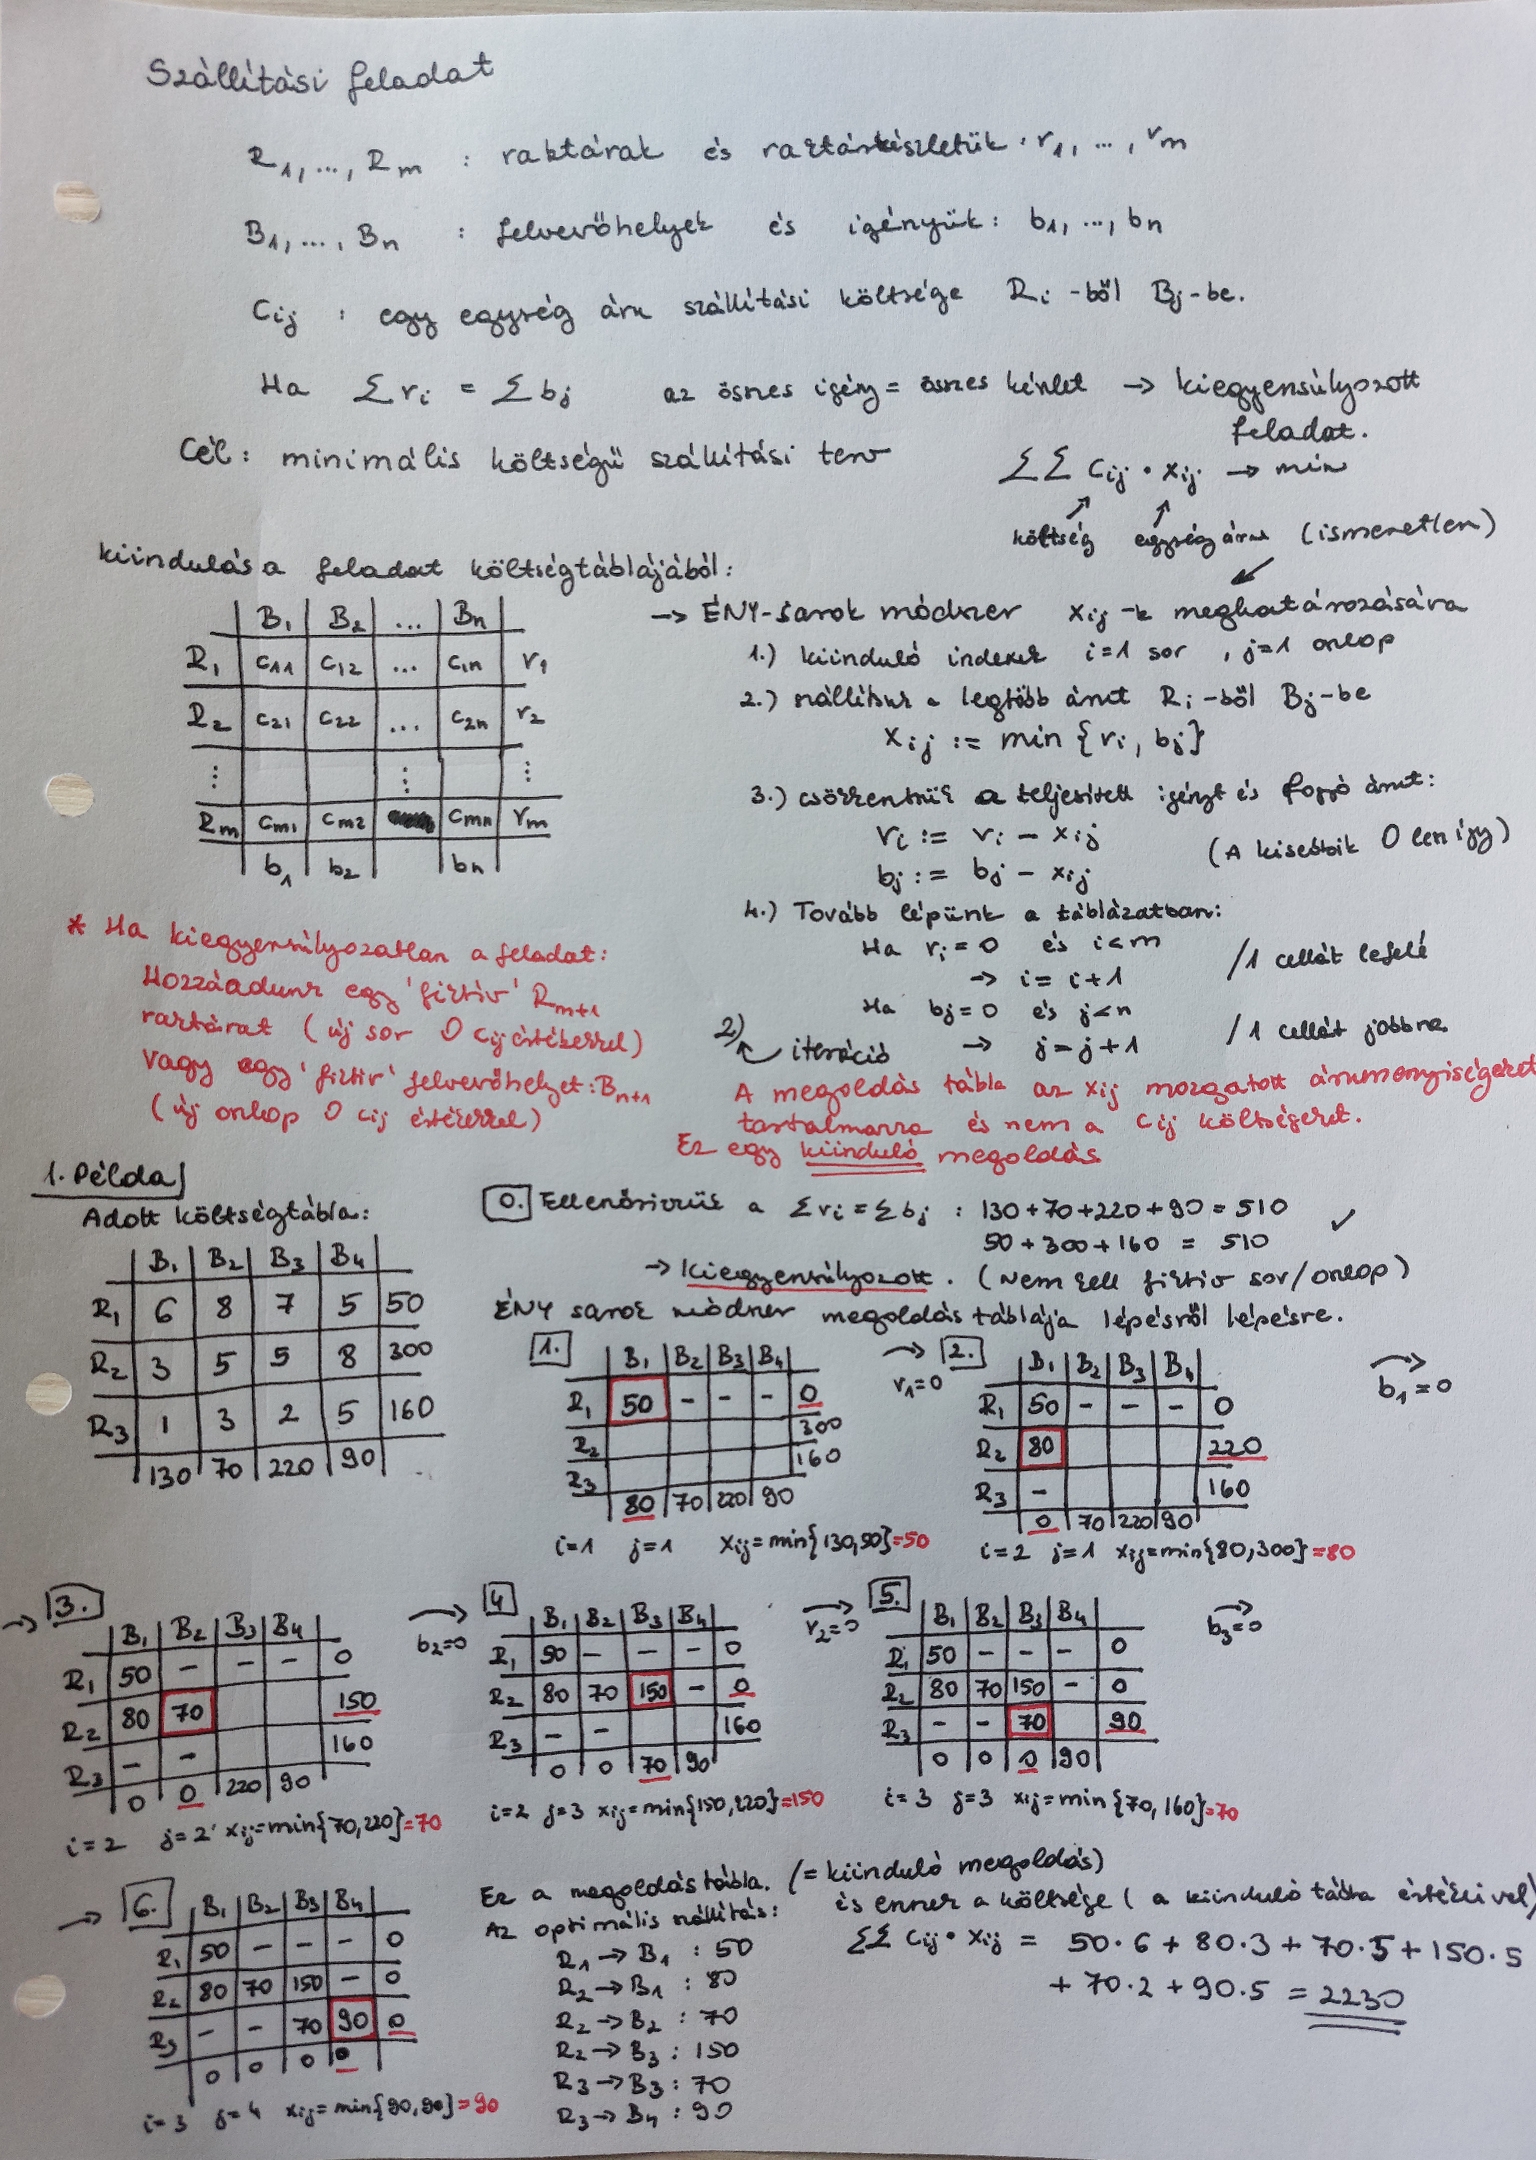 Szállítási feladat
R1, ..., Rm : raktárak és raktárkészletük: r1, ..., rm
B1, ..., Bn : felvevőhelyek és igényük: b1, ..., bn
Cij : egy egység áru szállítási költsége Ri-ből Bj-be.
Ha Σri = Σbj az össes igény = összes készlet → kiegyensúlyozott
feladat.
Cél: minimális költségű szállítási terv
ΣΣ Cij · xij → min
költség egység áru (ismeretlen)
kiindulás a feladat költségtáblájából:
B1 B2 ... Bn
R1 C11 C12 ... C1n r1
R2 C21 C22 ... C2n r2
⋮ ⋮ ⋮
Rm Cm1 Cm2 Cmn rm
b1 b2 bn
→ ÉNY-sarok módszer xij-k meghatározására
1.) kiinduló indexek i=1 sor, j=1 oszlop
2.) szállítsuk a legtöbb árut Ri-ből Bj-be
xij := min {ri, bj}
3.) csökkentjük a teljesített igényt és fogyó árut:
ri := ri - xij
bj := bj - xij
(A kisebbik 0 lesz így)
4.) Tovább lépünk a táblázatban:
Ha ri = 0 és i<m
→ i = i+1 /1 cellát lefelé
Ha bj=0 és j<n
2) iteráció → j=j+1 /1 cellát jobbra
A megoldás tábla az xij mozgatott árumennyiségeket
tartalmazza és nem a Cij költségeket.
Ez egy kiinduló megoldás
* Ha kiegyensúlyozatlan a feladat:
Hozzáadunk egy 'fiktív' Rm+1
raktárat (új sor 0 Cij értékekkel)
vagy egy 'fiktív' felvevőhelyet: Bn+1
(új oszlop 0 cij értékekkel)
1. Példa
Adott költségtábla:
B1 B2 B3 B4
R1 6 8 7 5 50
R2 3 5 5 8 300
R3 1 3 2 5 160
130 70 220 90
0. Ellenőrizzük a Σri = Σbj : 130+70+220+90 = 510
50+300+160 = 510 ✓
→ kiegyensúlyozott. (Nem kell fiktív sor/oszlop)
ÉNY sarok módszer megoldás táblája lépésről lépésre.
1.
B1 B2 B3 B4
R1 50 - - - 0
R2 300
R3 160
80 70 220 90
i=1 j=1 xij=min{130,50}=50
→ r1=0
2.
B1 B2 B3 B4
R1 50 - - - 0
R2 80 220
R3 - 160
0 70 220 90
i=2 j=1 xij=min{80,300}=80
→ b1=0
→ 3.
B1 B2 B3 B4
R1 50 - - - 0
R2 80 70 150
R3 - - 160
0 0 220 90
i=2 j=2 xij=min{70,220}=70
→ b2=0
4
B1 B2 B3 B4
R1 50 - - - 0
R2 80 70 150 - 0
R3 - - 160
0 0 70 90
i=2 j=3 xij=min{150,220}=150
→ r2=0
5.
B1 B2 B3 B4
R1 50 - - - 0
R2 80 70 150 - 0
R3 - - 70 90
0 0 0 90
i=3 j=3 xij=min{70,160}=70
→ b3=0
→ 6.
B1 B2 B3 B4
R1 50 - - - 0
R2 80 70 150 - 0
R3 - - 70 90 0
0 0 0 0
i=3 j=4 xij=min{90,90}=90
Ez a megoldás tábla. (= kiinduló megoldás)
Az optimális szállítás:
R1 → B1 : 50
R2 → B1 : 80
R2 → B2 : 70
R2 → B3 : 150
R3 → B3 : 70
R3 → B4 : 90
és ennek a költsége (a kiinduló tábla értékeivel)
ΣΣ Cij · xij = 50·6 + 80·3 + 70·5 + 150·5
+ 70·2 + 90·5 = 2230